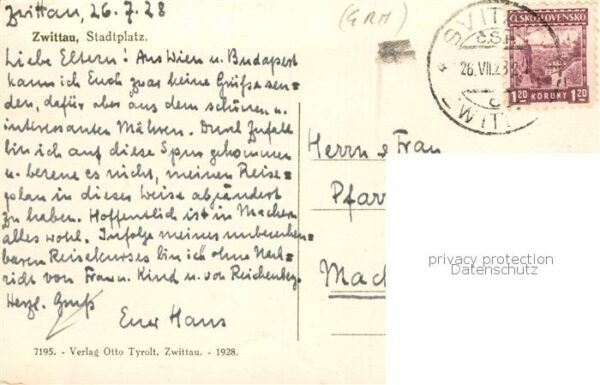 Zwittau, 26.7.28
(GRM)
Zwittau, Stadtplatz.
Liebe Eltern! Aus Wien u. Budapest
kann ich Euch zwar keine Grüße sen=
den, dafür aber aus dem schönen u.
interessanten Mähren. Durch Zufall
bin ich auf diese Spur gekommen
u. bereue es nicht, meinen Reise=
plan in dieser Weise abgeändert
zu haben. Hoffentlich ist in Machern
alles wohl. Infolge meines unberechen=
baren Reisekurses bin ich ohne Nach=
richt von Frau u. Kind u. von Reichenbg.
Herzl. Gruß
Euer Hans
7195. - Verlag Otto Tyrolt, Zwittau. - 1928.
Herrn u Frau
Pfarr
Mach
SVITA
ČSR
26.VII.28
ZWITT
ČESKOSLOVENSKO
1.20 KORUNY 1.20
privacy protection
Datenschutz